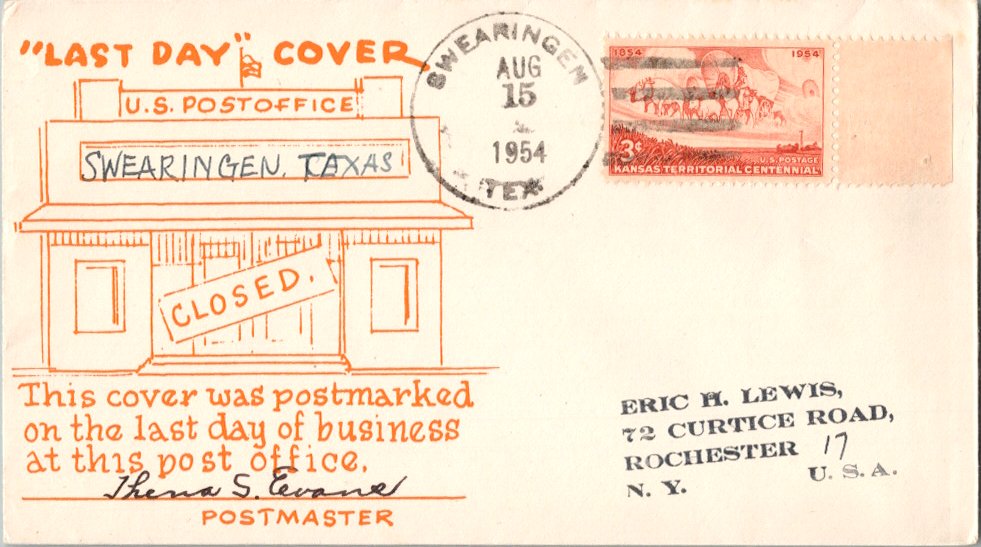 "LAST DAY" COVER
U.S. POSTOFFICE
SWEARINGEN, TAXAS
CLOSED.
This cover was postmarked
on the last day of business
at this post office.
Thena S. Evans
POSTMASTER
SWEARINGEN
AUG
15
1954
TEX
1854 1954
3¢
U.S. POSTAGE
KANSAS TERRITORIAL CENTENNIAL
ERIC H. LEWIS,
72 CURTICE ROAD,
ROCHESTER 17
N. Y. U. S. A.